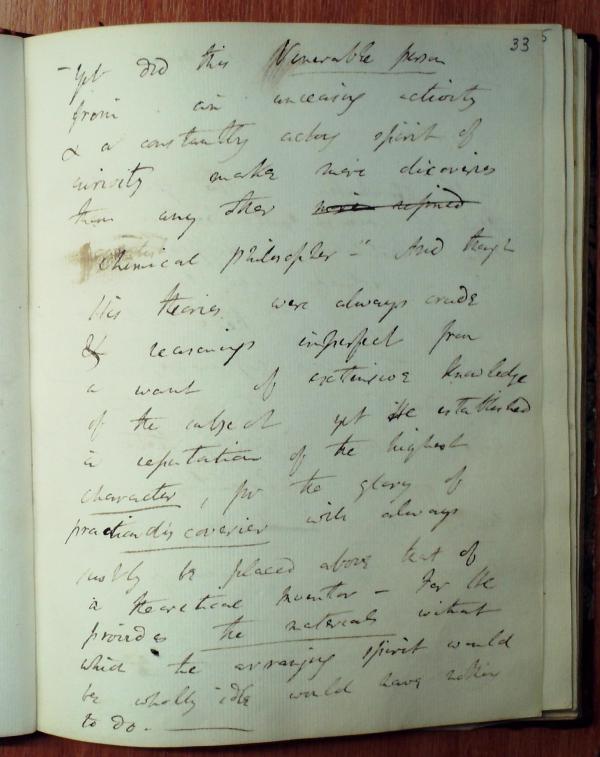 33 5
- Yet did this Venerable person
from an unceasing activity
& a constantly acting spirit of
curiosity make more discoveries
than any other more refined
Chemical philosopher - And though
His theories were always crude
& reasonings imperfect from
a want of extensive knowledge
of the subject yet He established
a reputation of the highest
character, for the glory of
practical discoveries will always
justly be placed above that of
a theoretical Inventor - For He
provides the materials without
which the arranging spirit would
be wholly idle would have nothing
to do.